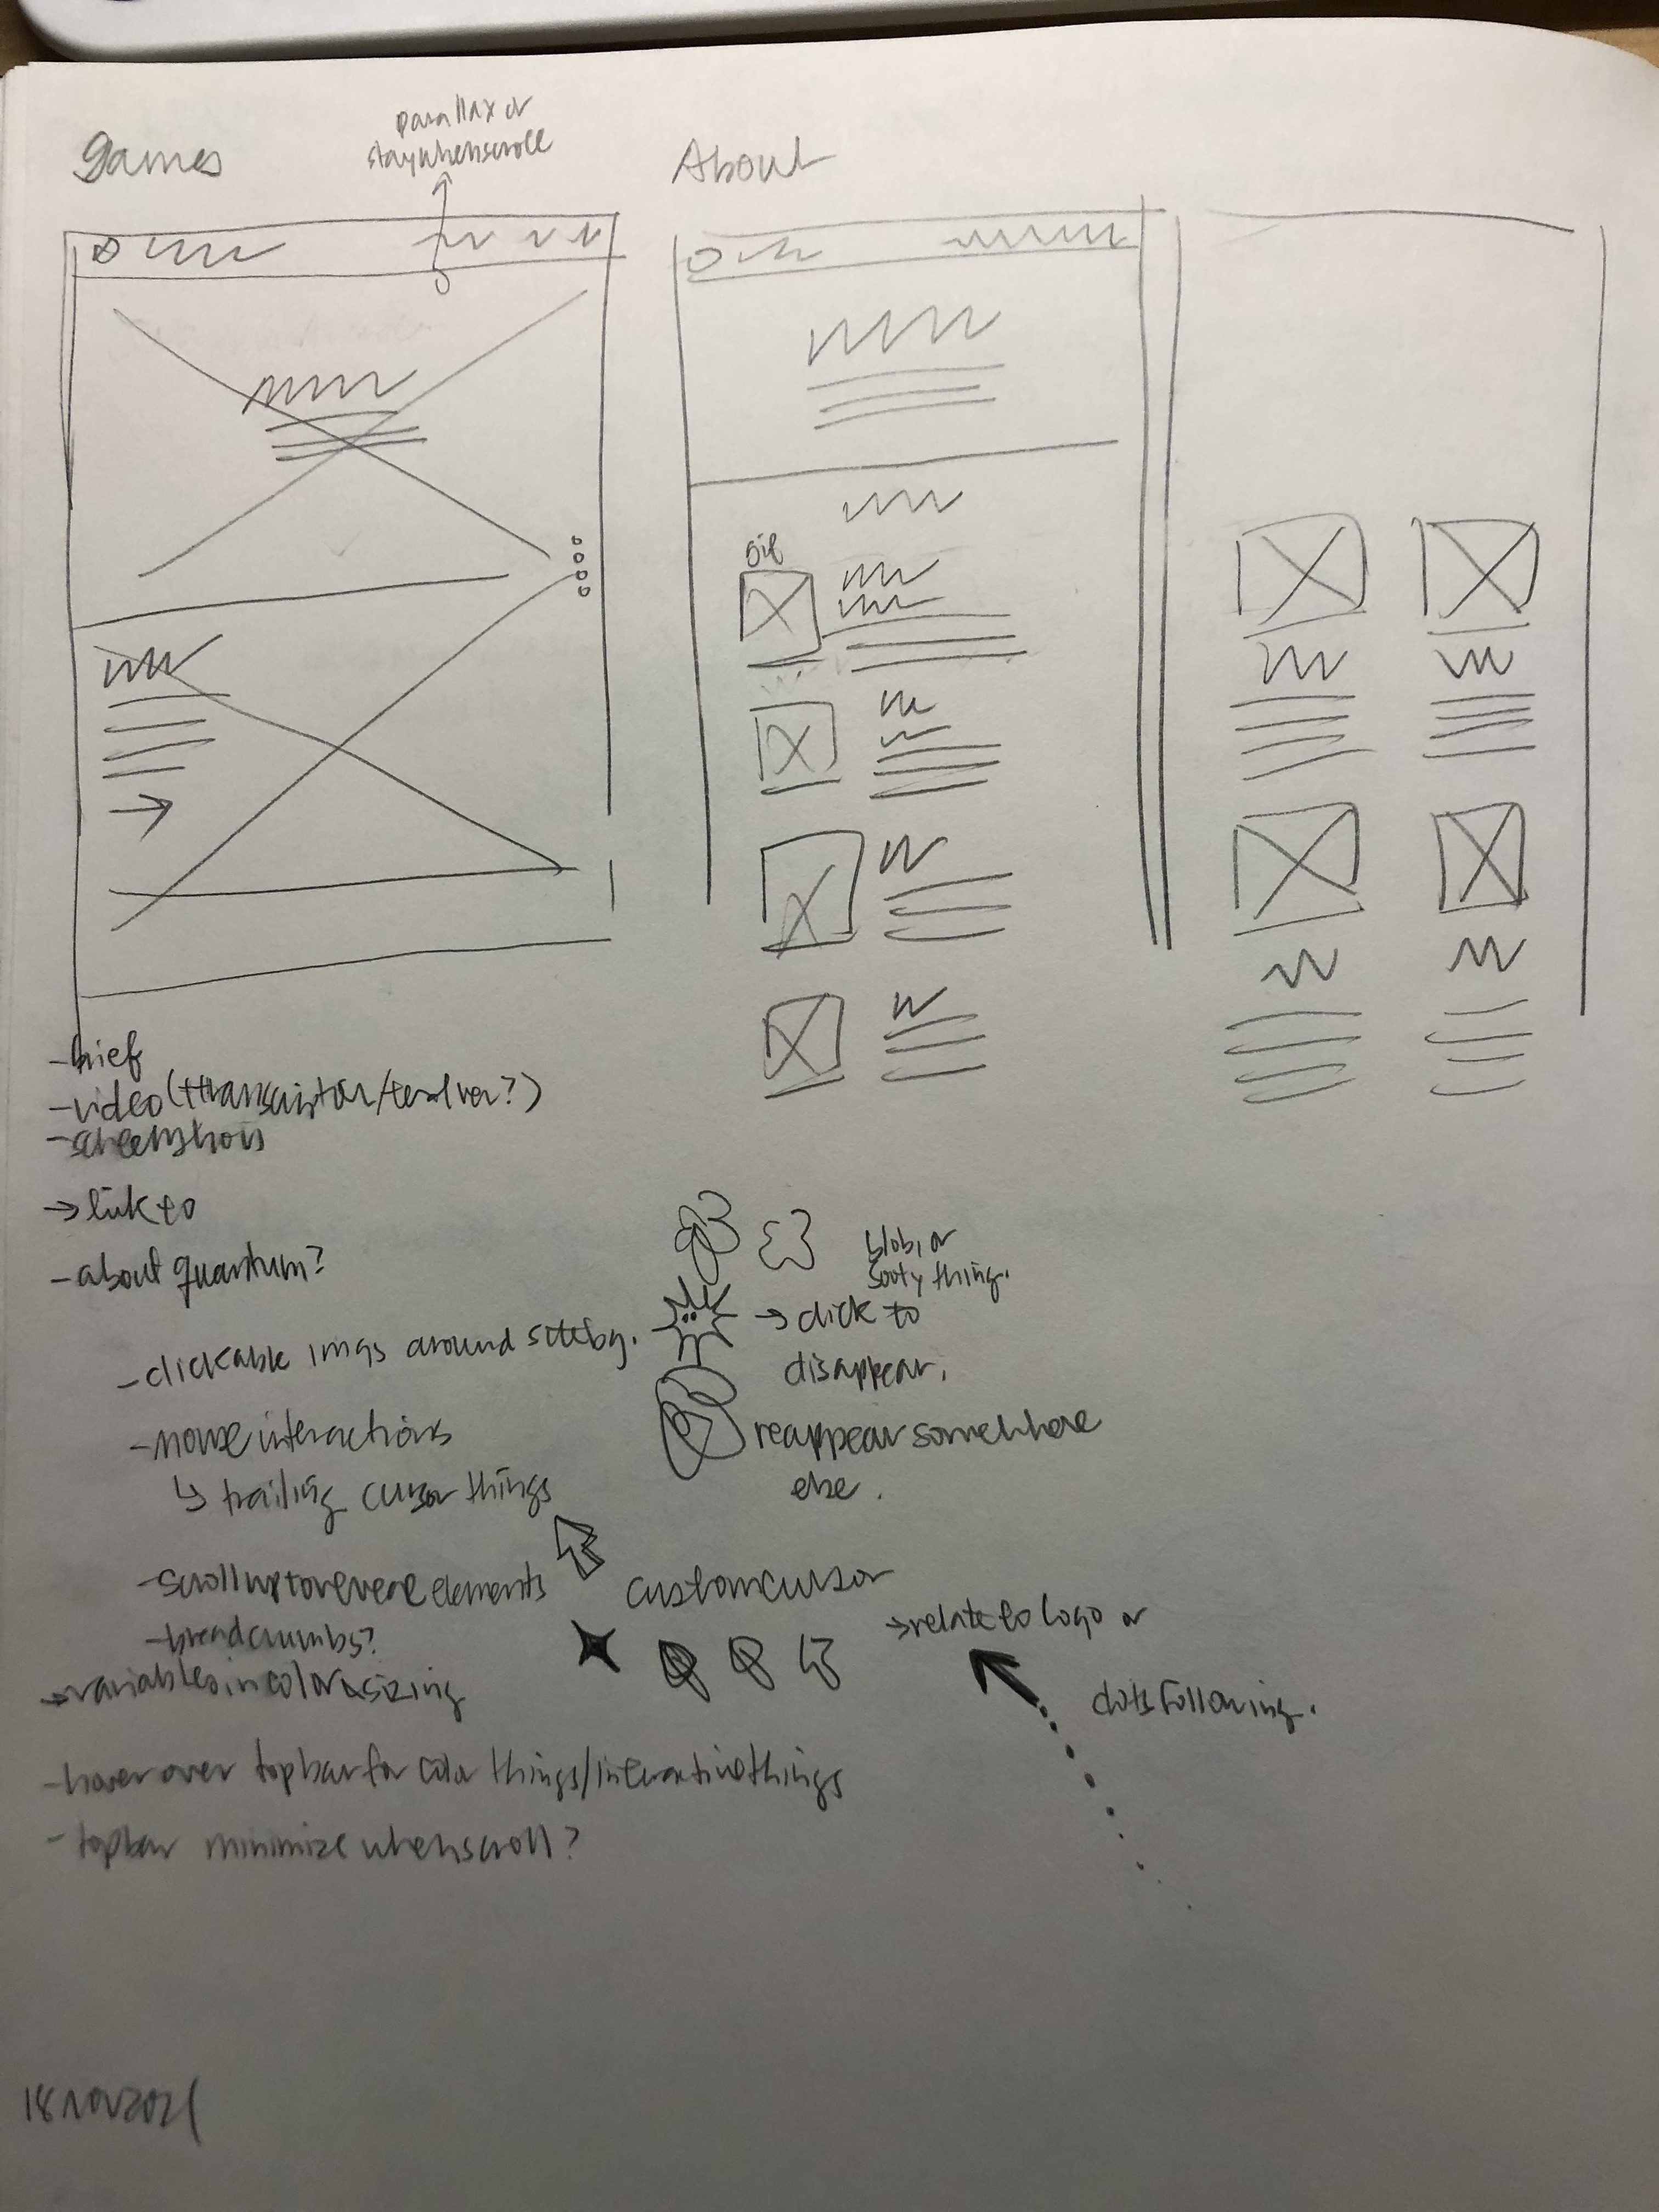 Games
parallax or
stay when scroll
About
gif
- brief
- video (
- screenshots
→ link to
- about quantum?
- clickable imgs around site bg.
blob, or
sooty thing.
→ click to
disappear,
reappear somewhere
else.
- mouse interactions
↳ trailing cursor things
- scroll up to reveal elements
- breadcrumbs?
→ variables in color & sizing
custom cursor
→ relate to logo or
dots following.
- hover over top bar for color things/interactive things
- top bar minimize when scroll?
18 nov 2021